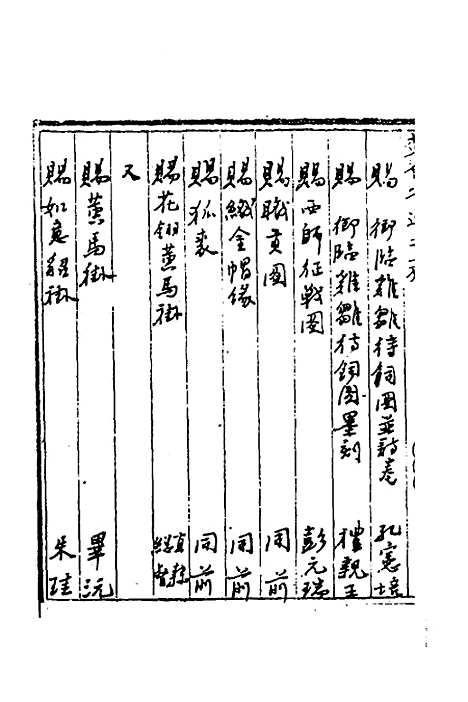 賜 御臨雞雛待飼圖並詩卷 孔憲培
賜 御臨雞雛待飼圖墨刻 禮親王
賜西師征戰圖 彭元瑞
賜職貢圖 同前
賜織金帽緣 同前
賜狐裘 同前
賜花翎黃馬褂 直隸總督
又
賜黃馬褂 畢沅
賜如意貂褂 朱珪